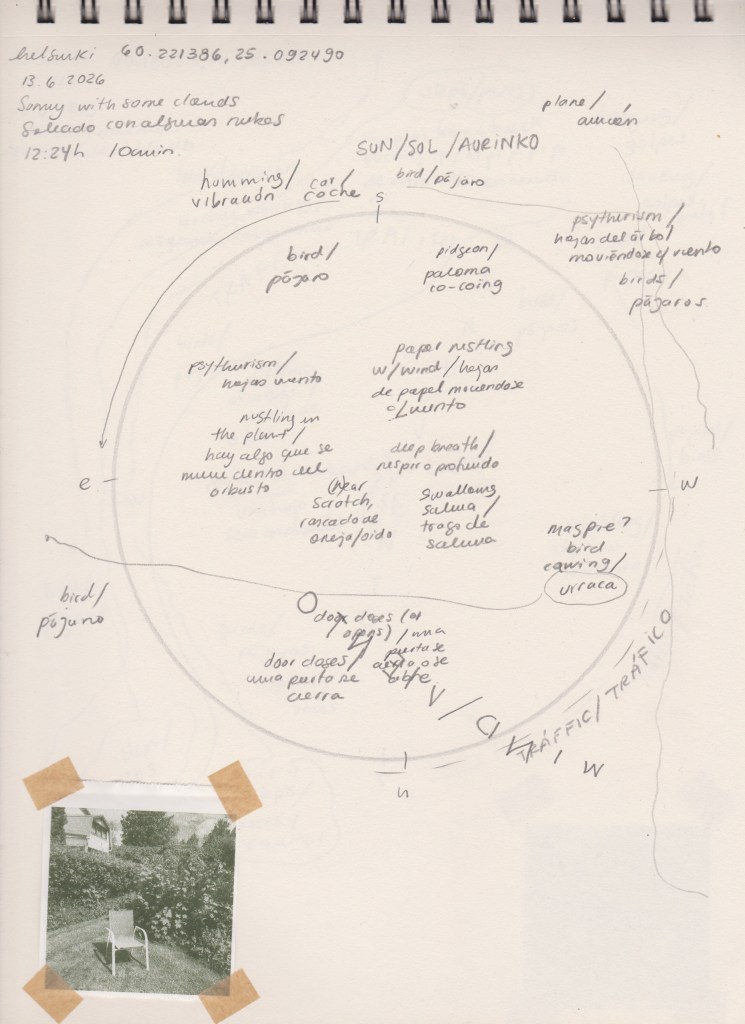 helsinki 60.221386, 25.092490
13.6.2026
Sunny with some clouds
Soleado con algunas nubes
12:24h 10min.
plane/
avión
SUN/SOL/AURINKO
humming/
vibración
car/
coche
bird/pájaro
s
psythurism/
hojas del árbol
moviéndose c/ viento
birds/
pájaros
bird/
pájaro
pidgeon/
paloma
co-coing
psythurism/
hojas viento
paper rustling
w/wind/hojas
de papel moviendose
c/viento
rustling in
the plant/
hay algo que se
mueve dentro del
arbusto
deep breath/
respiro profundo
e
w
ear
scratch,
rascado de
oreja/oído
swallowing
saliva/
trago de
saliva
magpie?
bird
cawing/
urraca
bird/
pájaro
door closes (or
opens)/una
puerta se
cierra o se
abre
door closes/
una puerta se
cierra
TRÁFFIC/TRÁFICO
n